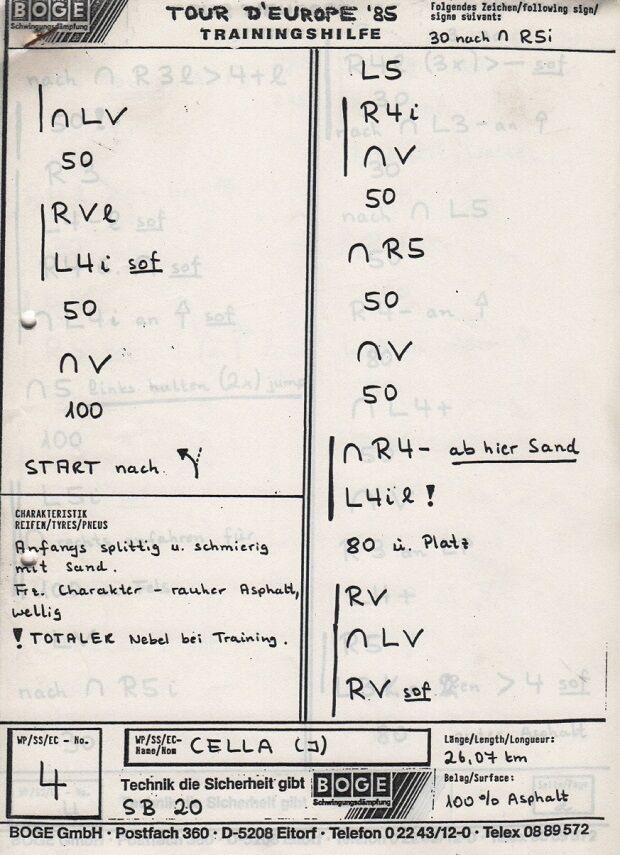 BOGE
Schwingungsdämpfung
TOUR D'EUROPE '85
TRAININGSHILFE
Folgendes Zeichen/following sign/
signe suivant:
30 nach ∩ R5i
∩ LV
50
RVl
L4i sof
50
∩ V
100
START nach
CHARAKTERISTIK
REIFEN/TYRES/PNEUS
Anfangs splittig u. schmierig
mit Sand.
Frz. Charakter - rauher Asphalt,
wellig
! TOTALER Nebel bei Training.
L5
R4i
∩ V
50
∩ R5
50
∩ V
50
∩ R4- ab hier Sand
L4il !
80 ü. Platz
RV
∩ LV
RV sof
WP/SS/EC - No.
4
WP/SS/EC-
Name/Nom
CELLA (J)
Länge/Length/Longueur:
26,07 km
Technik die Sicherheit gibt
BOGE
Schwingungsdämpfung
SB 20
Belag/Surface:
100 % Asphalt
BOGE GmbH · Postfach 360 · D-5208 Eitorf · Telefon 0 22 43/12-0 · Telex 08 89 572